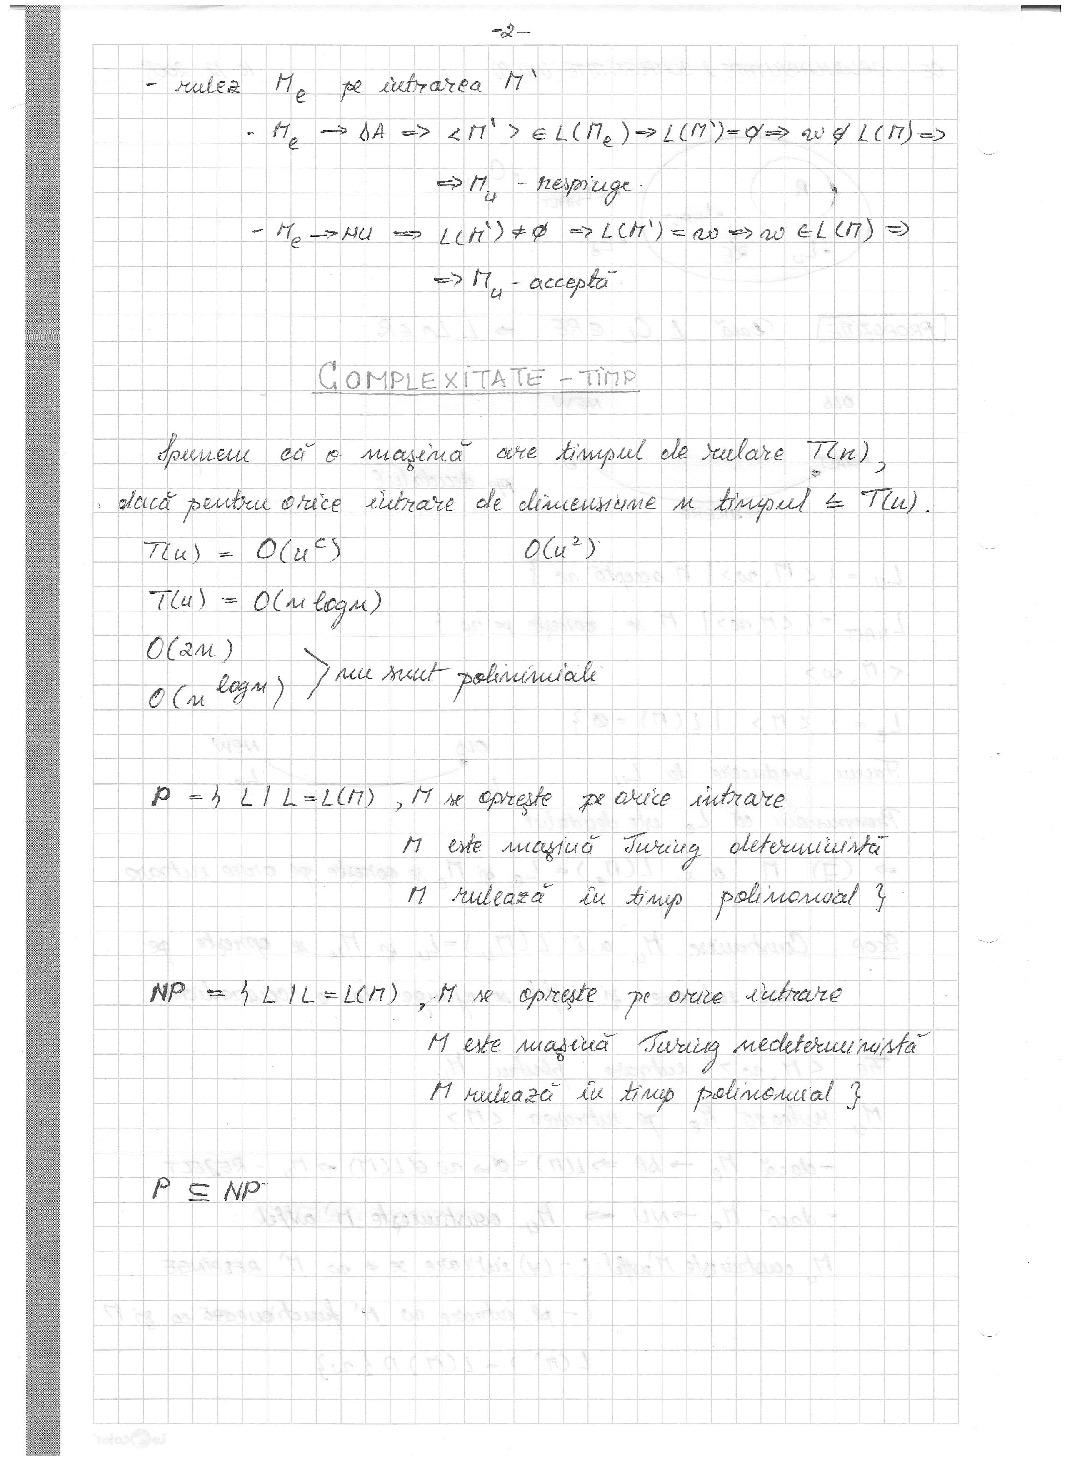 -2-
- rulez Me pe intrarea M'
- Me → DA => <M'> ∈ L(Me) => L(M') = ∅ => w ∉ L(M) =>
=> Mu - respinge.
- Me → NU => L(M') ≠ ∅ => L(M') = w => w ∈ L(M) =>
=> Mu - acceptă
COMPLEXITATE - TIMP
Spunem că o maşină are timpul de rulare T(n),
dacă pentru orice intrare de dimensiune n timpul ≤ T(n).
T(n) = O(n^c) O(n²)
T(n) = O(n log n)
O(2n)
O(n^log n) > nu sunt polinimiali
P = { L / L = L(M), M se opreşte pe orice intrare
M este maşină Turing deterministă
M rulează în timp polinomial }
NP = { L / L = L(M), M se opreşte pe orice intrare
M este maşină Turing nedeterministă
M rulează în timp polinomial }
P ⊆ NP